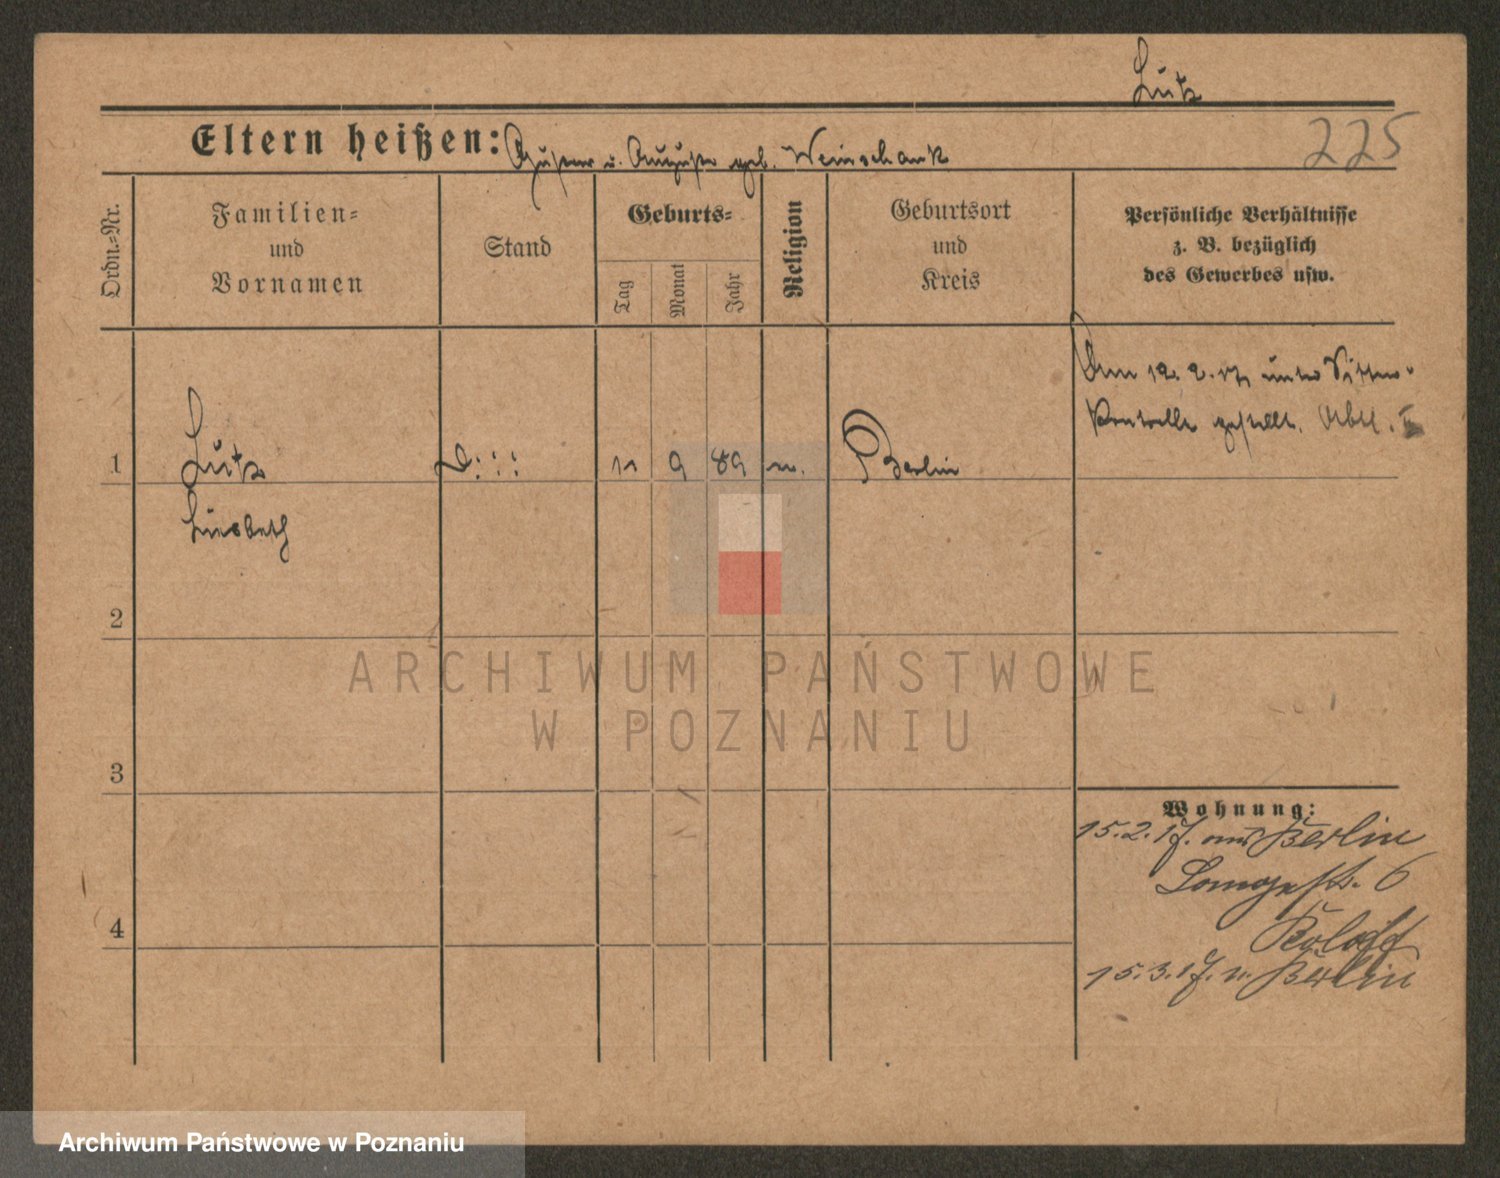 Lutz
Eltern heißen: Gustav u. Auguste geb. Weinschank
225
Ordn.-Nr.
Familien-
und
Vornamen
Stand
Geburts-
Tag
Monat
Jahr
Religion
Geburtsort
und
Kreis
Persönliche Verhältnisse
z. B. bezüglich
des Gewerbes usw.
Am 12. 2. 17 unter Sitten-
Kontrolle gestellt. Abtl. II
1
Lutz
11
9
89
Berlin
Liesbeth
2
ARCHIWUM PAŃSTWOWE
W POZNANIU
3
Wohnung:
15.2.17. aus Berlin
6
4
15.3.17. n. Berlin
Archiwum Państwowe w Poznaniu